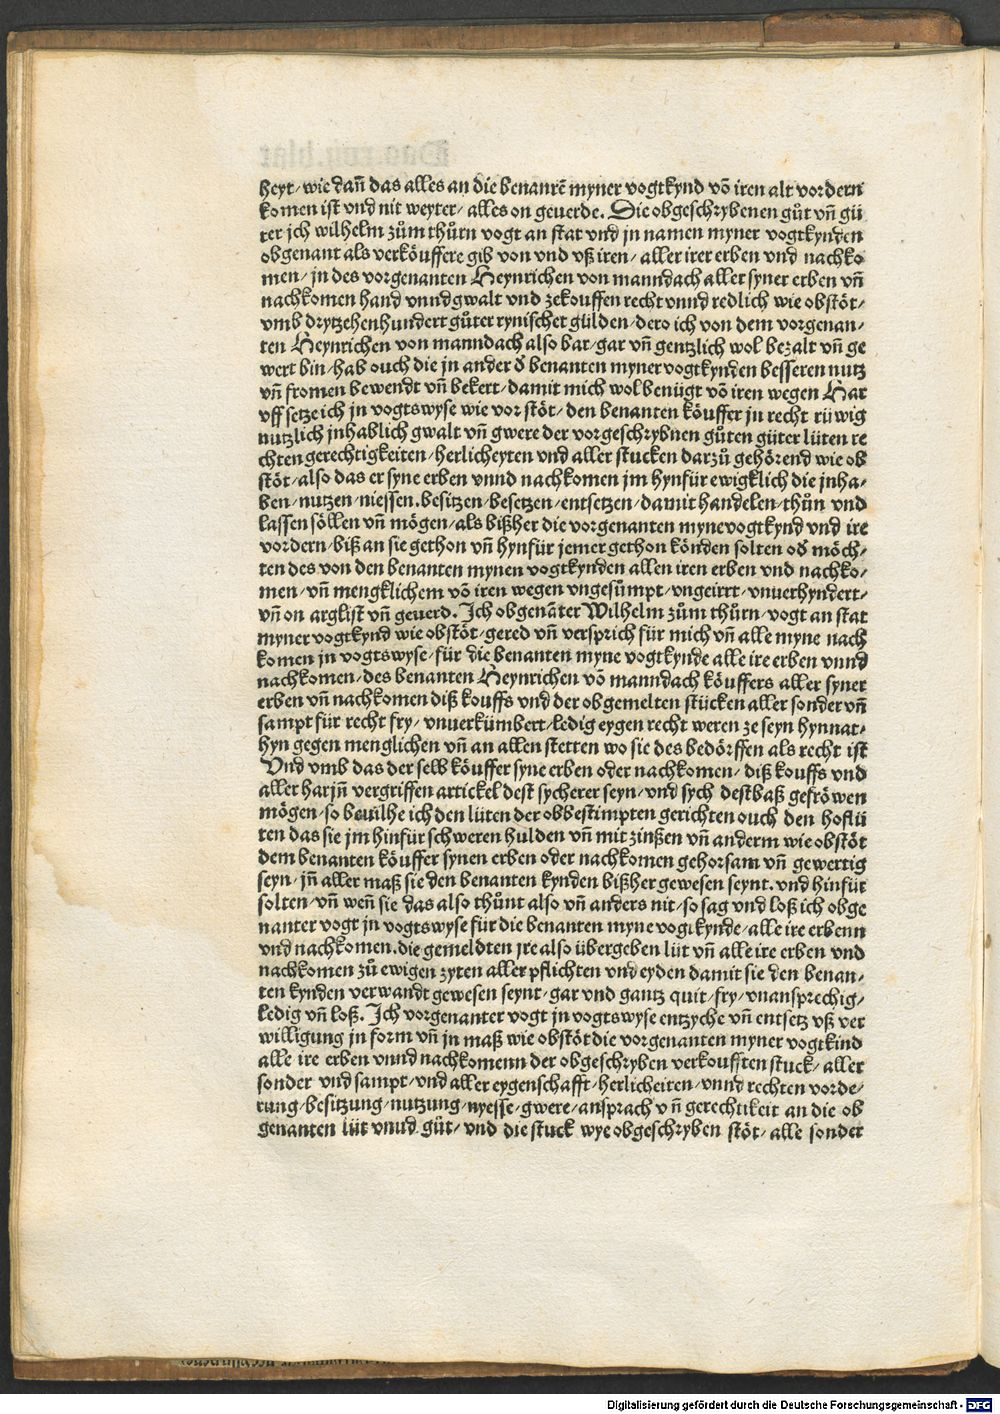 heyt/ wie dañ das alles an die benantē myner vogtkynd vō iren alt vordern
komen ist vnd nit weyter/ alles on geuerde. Die obgeschrybenen gůt vñ gü
ter jch wilhelm zům thůrn vogt an stat vnd jn namen myner vogtkynden
obgenant als verköuffere gib von vnd vß iren/ aller irer erben vnd nachko
men/ jn des vorgenanten Heynrichen von manndach aller syner erben vñ
nachkomen hand vnnd gwalt vnd zekouffen recht vnnd redlich wie obstöt/
vmb drytzehenhundert gůter rynischer gülden/ dero ich von dem vorgenan/
ten Heynrichen von manndach also bar/ gar vñ gentzlich wol bezalt vñ ge
wert bin/ hab ouch die jn ander ď benanten myner vogtkynden besseren nutz
vñ fromen bewendt vñ bekert/ damit mich wol benügt vō iren wegen Har
vff setze ich jn vogtswyse wie vor stöt/ den benanten köuffer jn recht rüwig
nutzlich jnhablich gwalt vñ gwere der vorgeschrybnen gůten güter lüten re
chten gerechtigkeiten/ herlicheyten vnd aller stucken darzů gehörend wie ob
stöt/ also das er syne erben vnnd nachkomen jm hynfür ewigklich die jnha/
ben/ nutzen/ niessen. besitzen/ besetzen/ entsetzen/ damit handelen/ thůn vnd
lassen söllen vñ mögen/ als bißher die vorgenanten myne vogtkynd vnd ire
vordern/ biß an sie gethon vñ hynfür jemer gethon könden solten oď möch/
ten des von den benanten mynen vogtkynden allen iren erben vnd nachko/
men/ vñ mengklichem vō iren wegen vngesůmpt/ vngeirrt/ vnuerhyndert/
vñ on arglist vñ geuerd. Ich obgenāter Wilhelm zům thůrn/ vogt an stat
myner vogtkynd wie obstöt/ gered vñ versprich für mich vñ alle myne nach
komen jn vogtswyse/ für die benanten myne vogtkynde alle ire erben vnnd
nachkomen/ des benanten Heynrichen vō manndach köuffers aller syner
erben vñ nachkomen diß kouffs vnd der obgemelten stücken aller sonder vñ
sampt für recht fry/ vnuerkümbert/ ledig eygen recht weren ze seyn hynnat/
hyn gegen menglichen vñ an allen stetten wo sie des bedörffen als recht ist
Vnd vmb das der selb köuffer syne erben oder nachkomen/ diß kouffs vnd
aller harjñ vergriffen artickel dest sycherer seyn/ vnd sych destbaß gefröwen
mögen/ so beuilhe ich den lüten der obbestimpten gerichten ouch den hoflü
ten das sie jm hinfür schweren hulden vñ mit zinßen vñ anderm wie obstöt
dem benanten köuffer synen erben oder nachkomen gehorsam vñ gewertig
seyn/ jñ aller maß sie den benanten kynden bißher gewesen seynt. vnd hinfür
solten/ vñ weñ sie das also thůnt also vñ anders nit/ so sag vnd loß ich obge
nanter vogt jn vogtswyse für die benanten myne vogtkynde/ alle ire erbenn
vnd nachkomen. die gemeldten jre also übergeben lüt vñ alle ire erben vnd
nachkomen zů ewigen zyten aller pflichten vnd eyden damit sie den benan/
ten kynden verwandt gewesen seynt/ gar vnd gantz quit/ fry/ vnansprechig/
ledig vñ loß. Ich vorgenanter vogt jn vogtswyse entzyche vñ entsetz vß ver
willigung jn form vñ jn maß wie obstöt die vorgenanten myner vogtkind
alle ire erben vnnd nachkomenn der obgeschryben verkoufften stuck/ aller
sonder vnd sampt/ vnd aller eygenschafft/ herlicheiten/ vnnd rechten vorde/
rung/ besitzung/ nutzung/ nyesse/ gwere/ ansprach vñ gerechtikeit an die ob
genanten lüt vnnd güt/ vnd die stuck wye obgeschryben stöt/ alle sonder
Digitalisierung gefördert durch die Deutsche Forschungsgemeinschaft - DFG